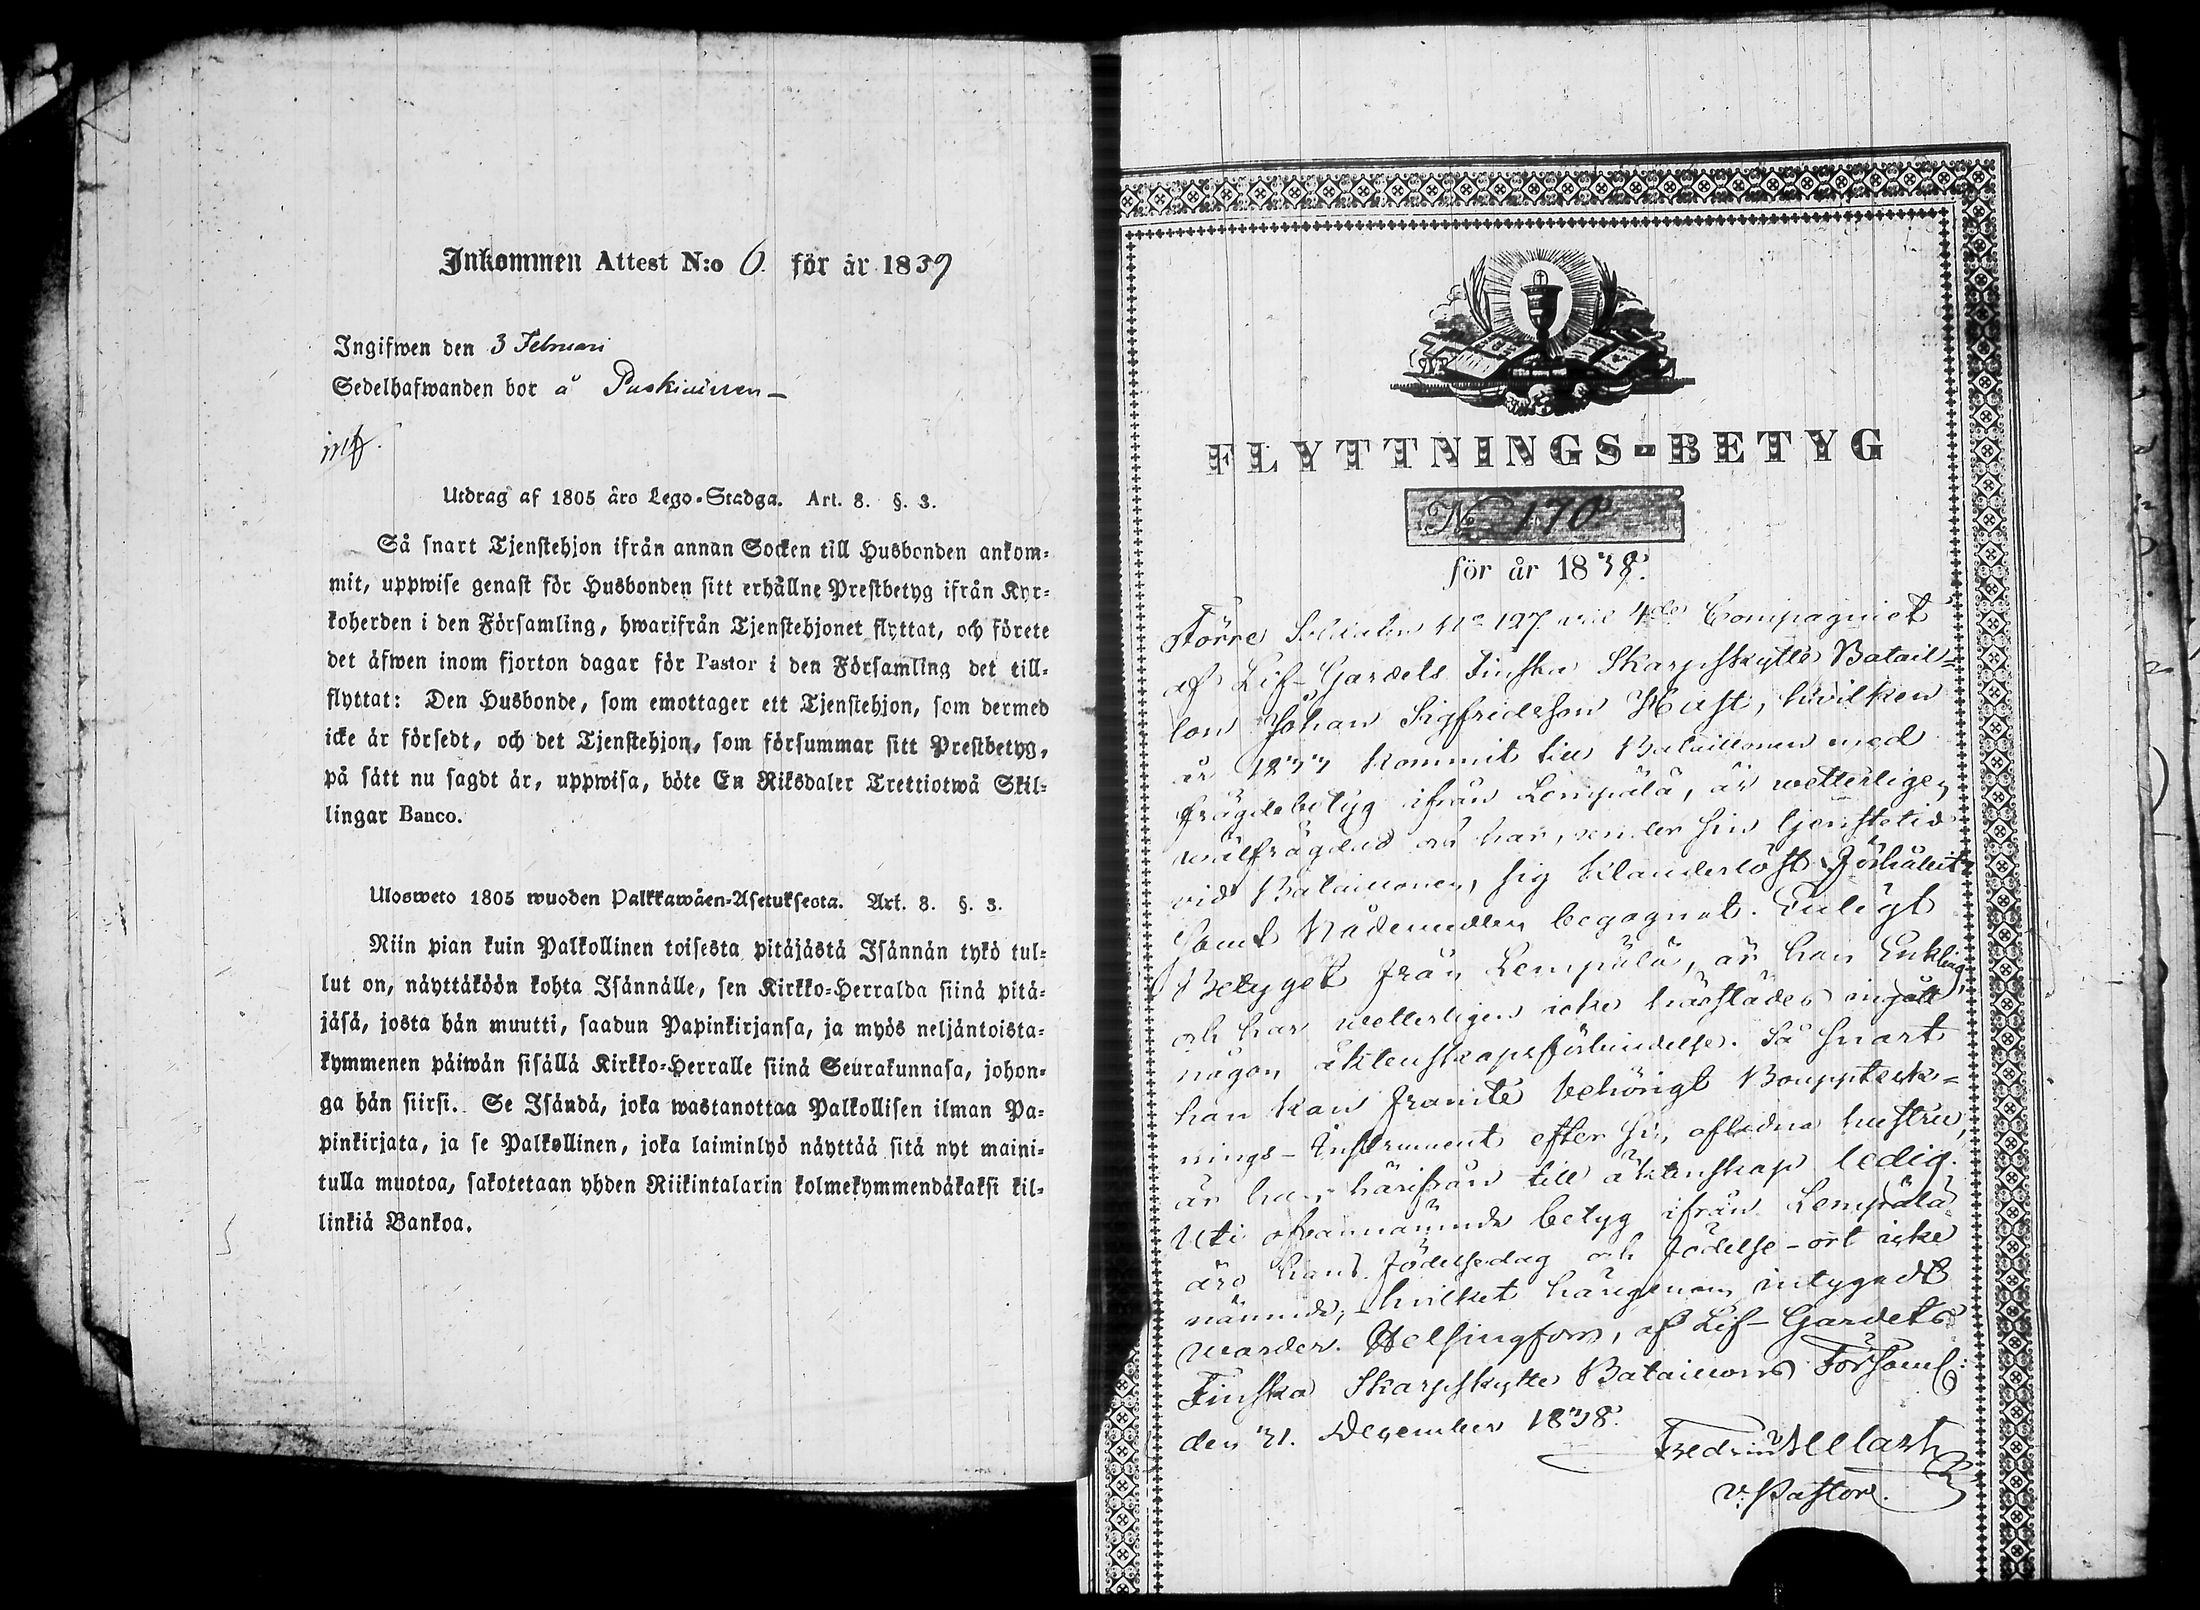 Inkommen Attest N:o 6. för år 1839
Ingifwen den 3 Februari
Sedelhafwanden bor å
Utdrag af 1805 års Lego-Stadga. Art. 8. §. 3.
Så snart Tjenstehjon ifrån annan Socken till Husbonden ankom-
mit, uppwise genast för Husbonden sitt erhållne Prestbetyg ifrån Kyr-
koherden i den Församling, hwarifrån Tjenstehjonet flyttat, och förete
det äfwen inom fjorton dagar för Pastor i den Församling det till-
flyttat: Den Husbonde, som emottager ett Tjenstehjon, som dermed
icke är försedt, och det Tjenstehjon, som försummar sitt Prestbetyg,
på sätt nu sagdt är, uppwisa, böte En Riksdaler Trettiotwå Skil-
lingar Banco.
Ulosweto 1805 wuoden Palkkawäen-Asetuksesta. Art. 8. §. 3.
Niin pian kuin Palkollinen toisesta pitäjästä Isännän tykö tul-
lut on, näyttäköön kohta Isännälle, sen Kirkko-Herralda siinä pitä-
jäsä, josta hän muutti, saadun Papinkirjansa, ja myös neljäntoista-
kymmenen päiwän sisällä Kirkko-Herralle siinä Seurakunnasa, johon-
ga hän siirsi. Se Isändä, joka wastanottaa Palkollisen ilman Pa-
pinkirjata, ja se Palkollinen, joka laiminlyö näyttää sitä nyt maini-
tulla muotoa, sakotetaan yhden Riikintalarin kolmekymmendäkaksi kil-
linkiä Bankoa.
FLYTTNINGS-BETYG
No 170
för år 1838.
Förre Soldaten No 127 vid 4de Compagniet
af Lif-Gardets Finska Skarpskytte Batail-
lon Johan Sigfridsson Hast, hvilken
år 1833 kommit till Bataillonen med
frägdebetyg ifrån Lempälä, är wetterligen
wälfrägdad och har, under sin tjenstetid
vid Bataillonen, sig klanderlöst förhållit
samt Nådemedlen begagnat. Enligt
Betyget från Lempälä, är han Enkling,
och har wetterligen icke härstädes ingått
någon äktenskapsförbindelse. Så snart
han kan framte behörigt Bouppteck-
nings-Instrument efter sin aflidna hustru,
är han härifrån till äktenskap ledig.
Uti ofvannämnde betyg ifrån Lempälä
äro hans födelsedag och födelse-ort icke
nämnde; - hvilket härigenom intygadt
warder. Helsingfors, af Lif-Gardets
Finska Skarpskytte Bataillons Församl:
den 31. December 1838.
v. Pastor.